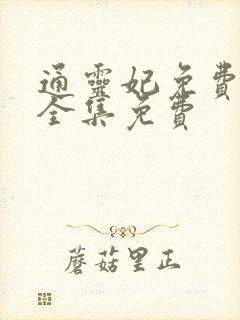 通靈妃免費
全集免費
蘑菇里正